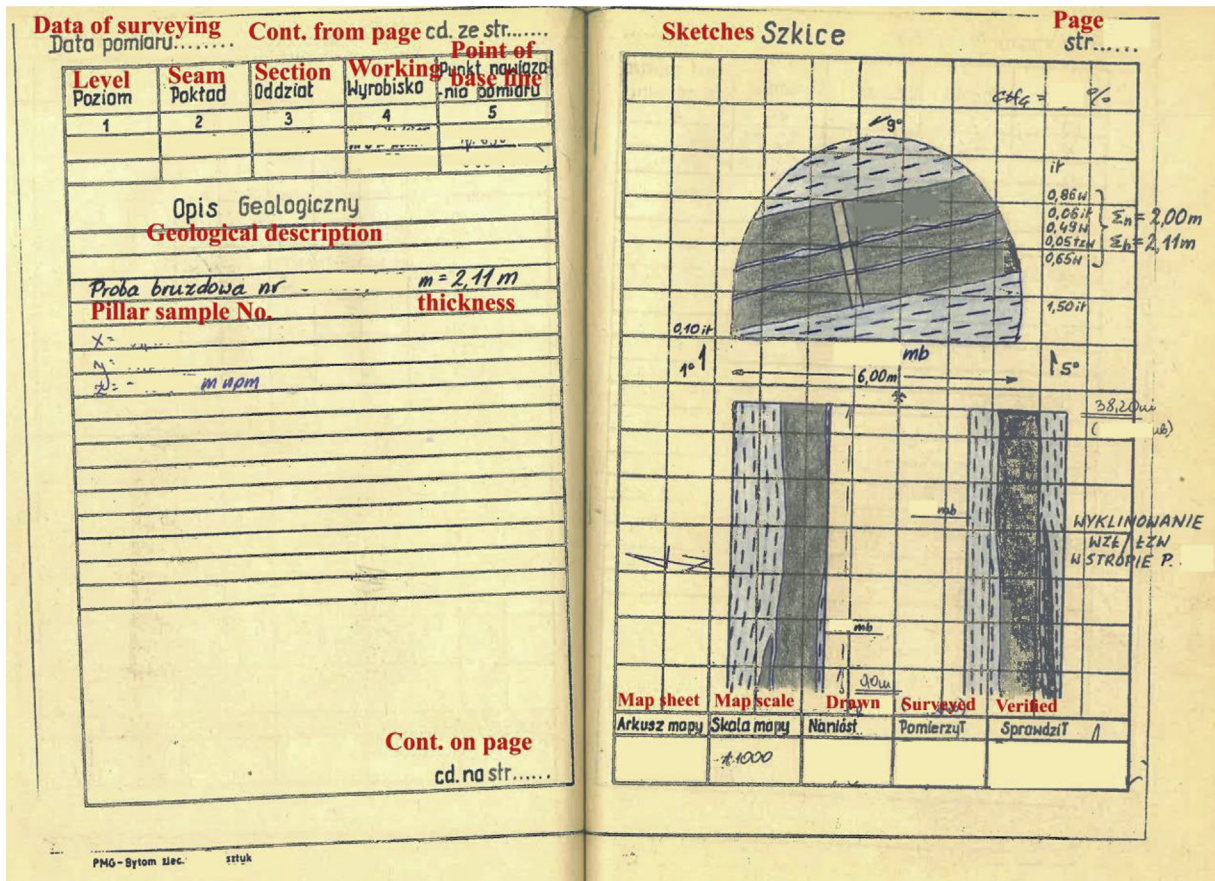 Data of surveying
Data pomiaru........
Cont. from page cd. ze str.......
Level
Poziom
Seam
Pokład
Section
Oddział
Working
Wyrobisko
Point of
base line
Punkt nawiąza-
-nia pomiaru
1 2 3 4 5
Opis Geologiczny
Geological description
Próba bruzdowa nr m = 2,11 m
Pillar sample No. thickness
x =
y =
z = - m npm
Cont. on page
cd. na str......
PMG-Bytom zlec. sztuk
Sketches Szkice
Page
str......
%
9°
ił
0,86w
0,06ił
0,49w
0,05łzw
0,65w
Σn = 2,00m
Σh = 2,11m
1,50ił
0,10ił
1°
mb
5°
6,00m
38,20m
mb
WYKLINOWANIE
WZŁ / ŁZW
W STROPIE P.
mb
0,0m
Map sheet Map scale Drawn Surveyed Verified
Arkusz mapy Skala mapy Naniósł Pomierzył Sprawdził
1:1000